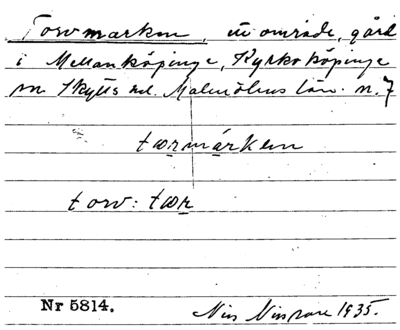 Torvmarken, ett område, gård
i Mellanköpinge, Kyrkoköpinge
sn. Skytts hd. Malmöhus län. n. 7
tωrmárken
torv: tωr
Nr 5814. 1935.